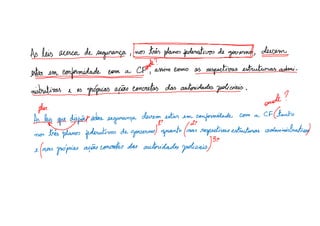 As leis acerca de segurança, nos três planos federativos de governo, devem
onde?
estar em conformidade com a CF, assim como as respectivas estruturas admi-
nistrativas e as próprias ações concretas das autoridades policiais.
onde?
As leis que dispõe sobre segurança devem estar em conformidade com a CF (tanto
1º 2º
nos três planos federativos de governo) quanto (nas respectivas estruturas administrativas)
3º
e (nas próprias ações concretas das autoridades policiais)